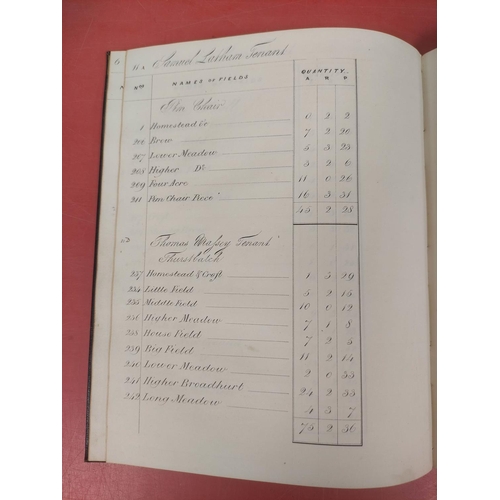 6
Samuel Latham Tenant
Nos NAMES OF FIELDS QUANTITY
A R P
Chair
1 Homestead &c 0 2 2
206 Brow 7 2 20
207 Lower Meadow 5 3 23
208 Higher Do 5 2 6
209 Four Acre 11 0 26
211 Pim Chair Piece 16 3 31
45 2 28
Thomas Massey Tenant
Thursbatch
237 Homestead & Croft 1 3 29
234 Little Field 5 2 18
235 Middle Field 10 0 12
236 Higher Meadow 7 1 8
238 House Field 7 2 5
239 Big Field 11 2 14
240 Lower Meadow 2 0 33
241 Higher Broadhurt 24 2 33
242 Long Meadow 4 3 7
75 2 36